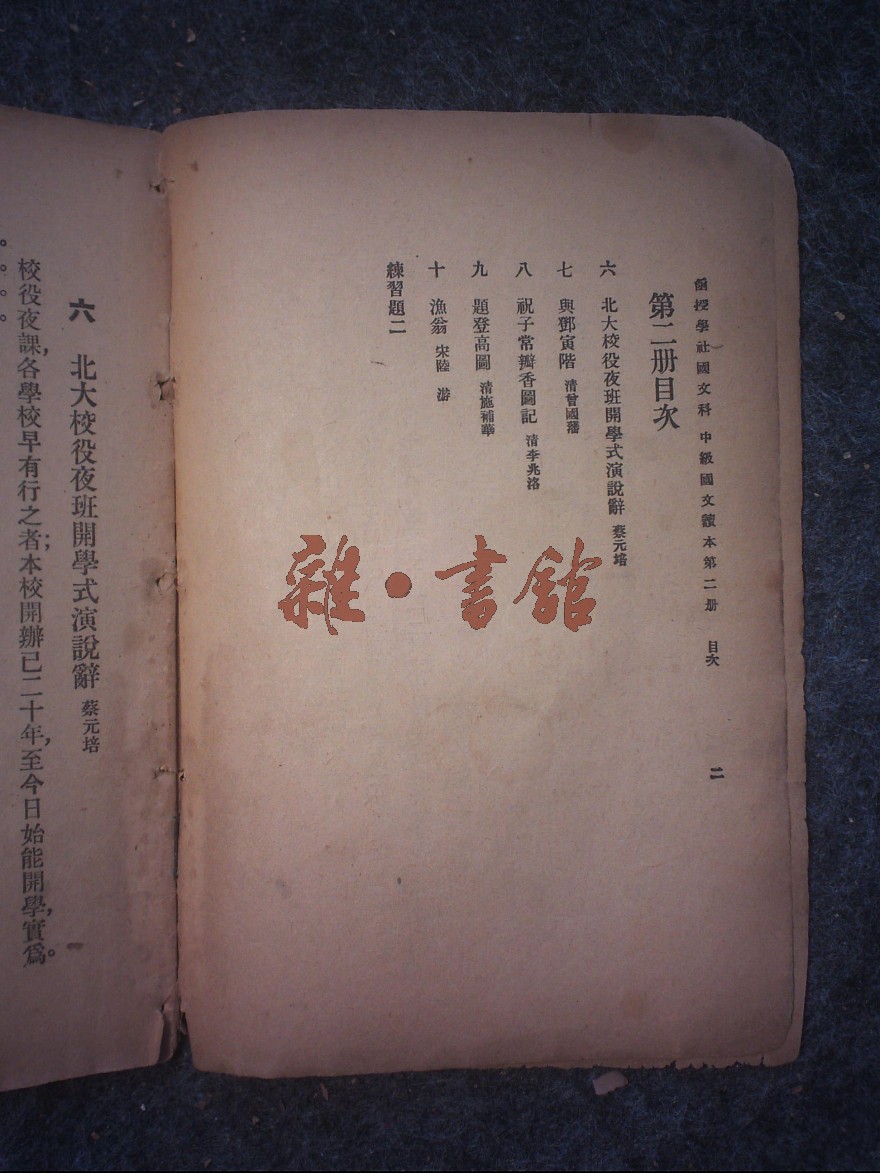 函授學社國文科 中級國文讀本第二册 目次 二
第二册目次
六 北大校役夜班開學式演說辭 蔡元培
七 與鄧寅階 清曾國藩
八 祝子常瓣香圖記 清李兆洛
九 題登高圖 清施補華
十 漁翁 宋陸 游
練習題二
六 北大校役夜班開學式演說辭 蔡元培
校役夜課,各學校早有行之者;本校開辦已二十年,至今日始能開學,實爲。
雜·書館